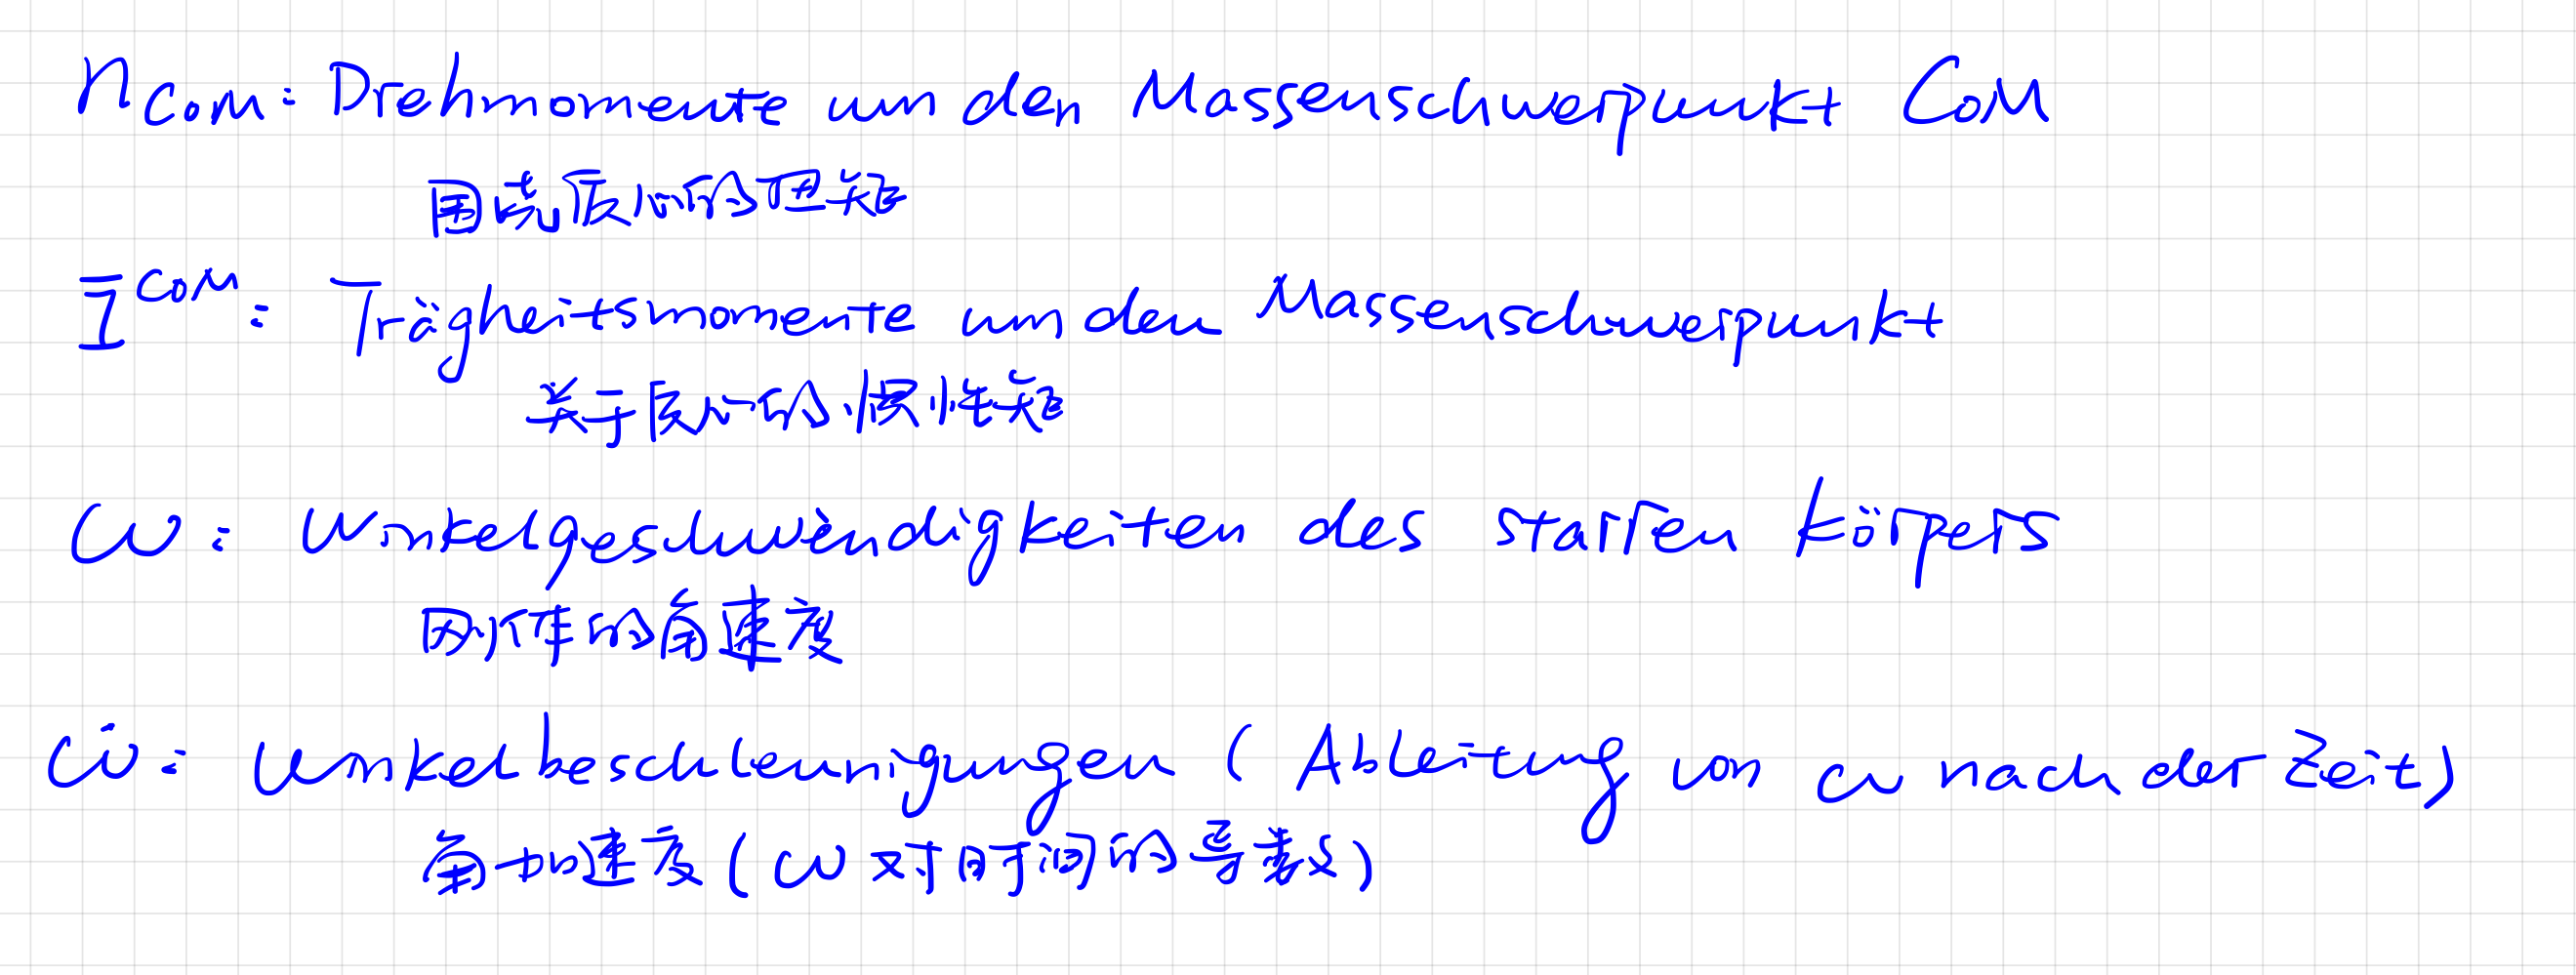 n_CoM: Drehmomente um den Massenschwerpunkt CoM
围绕质心的扭矩
I^CoM: Trägheitsmomente um den Massenschwerpunkt
关于质心的惯性矩
ω: Winkelgeschwindigkeiten des starren Körpers
刚体的角速度
ω̇: Winkelbeschleunigungen (Ableitung von ω nach der Zeit)
角加速度(ω对时间的导数)